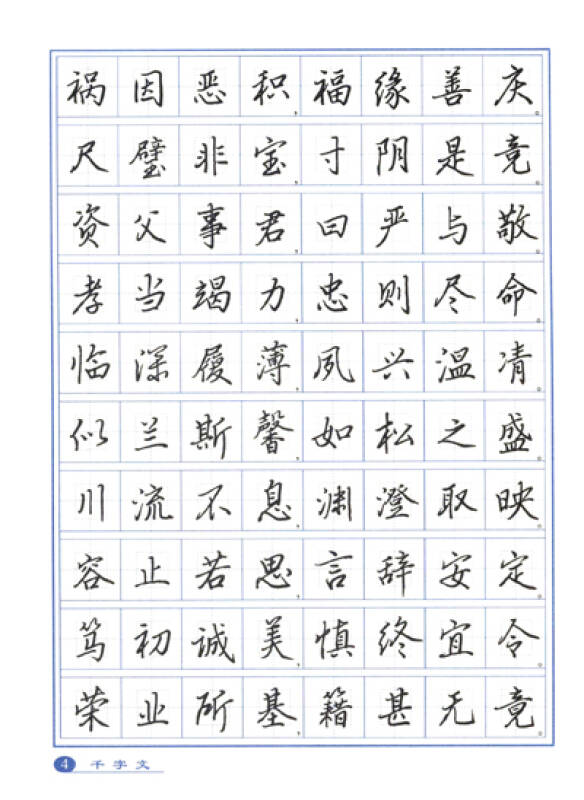 祸因恶积，福缘善庆。
尺璧非宝，寸阴是竞。
资父事君，曰严与敬。
孝当竭力，忠则尽命。
临深履薄，夙兴温凊。
似兰斯馨，如松之盛。
川流不息，渊澄取映。
容止若思，言辞安定。
笃初诚美，慎终宜令。
荣业所基，籍甚无竟。
4 千字文